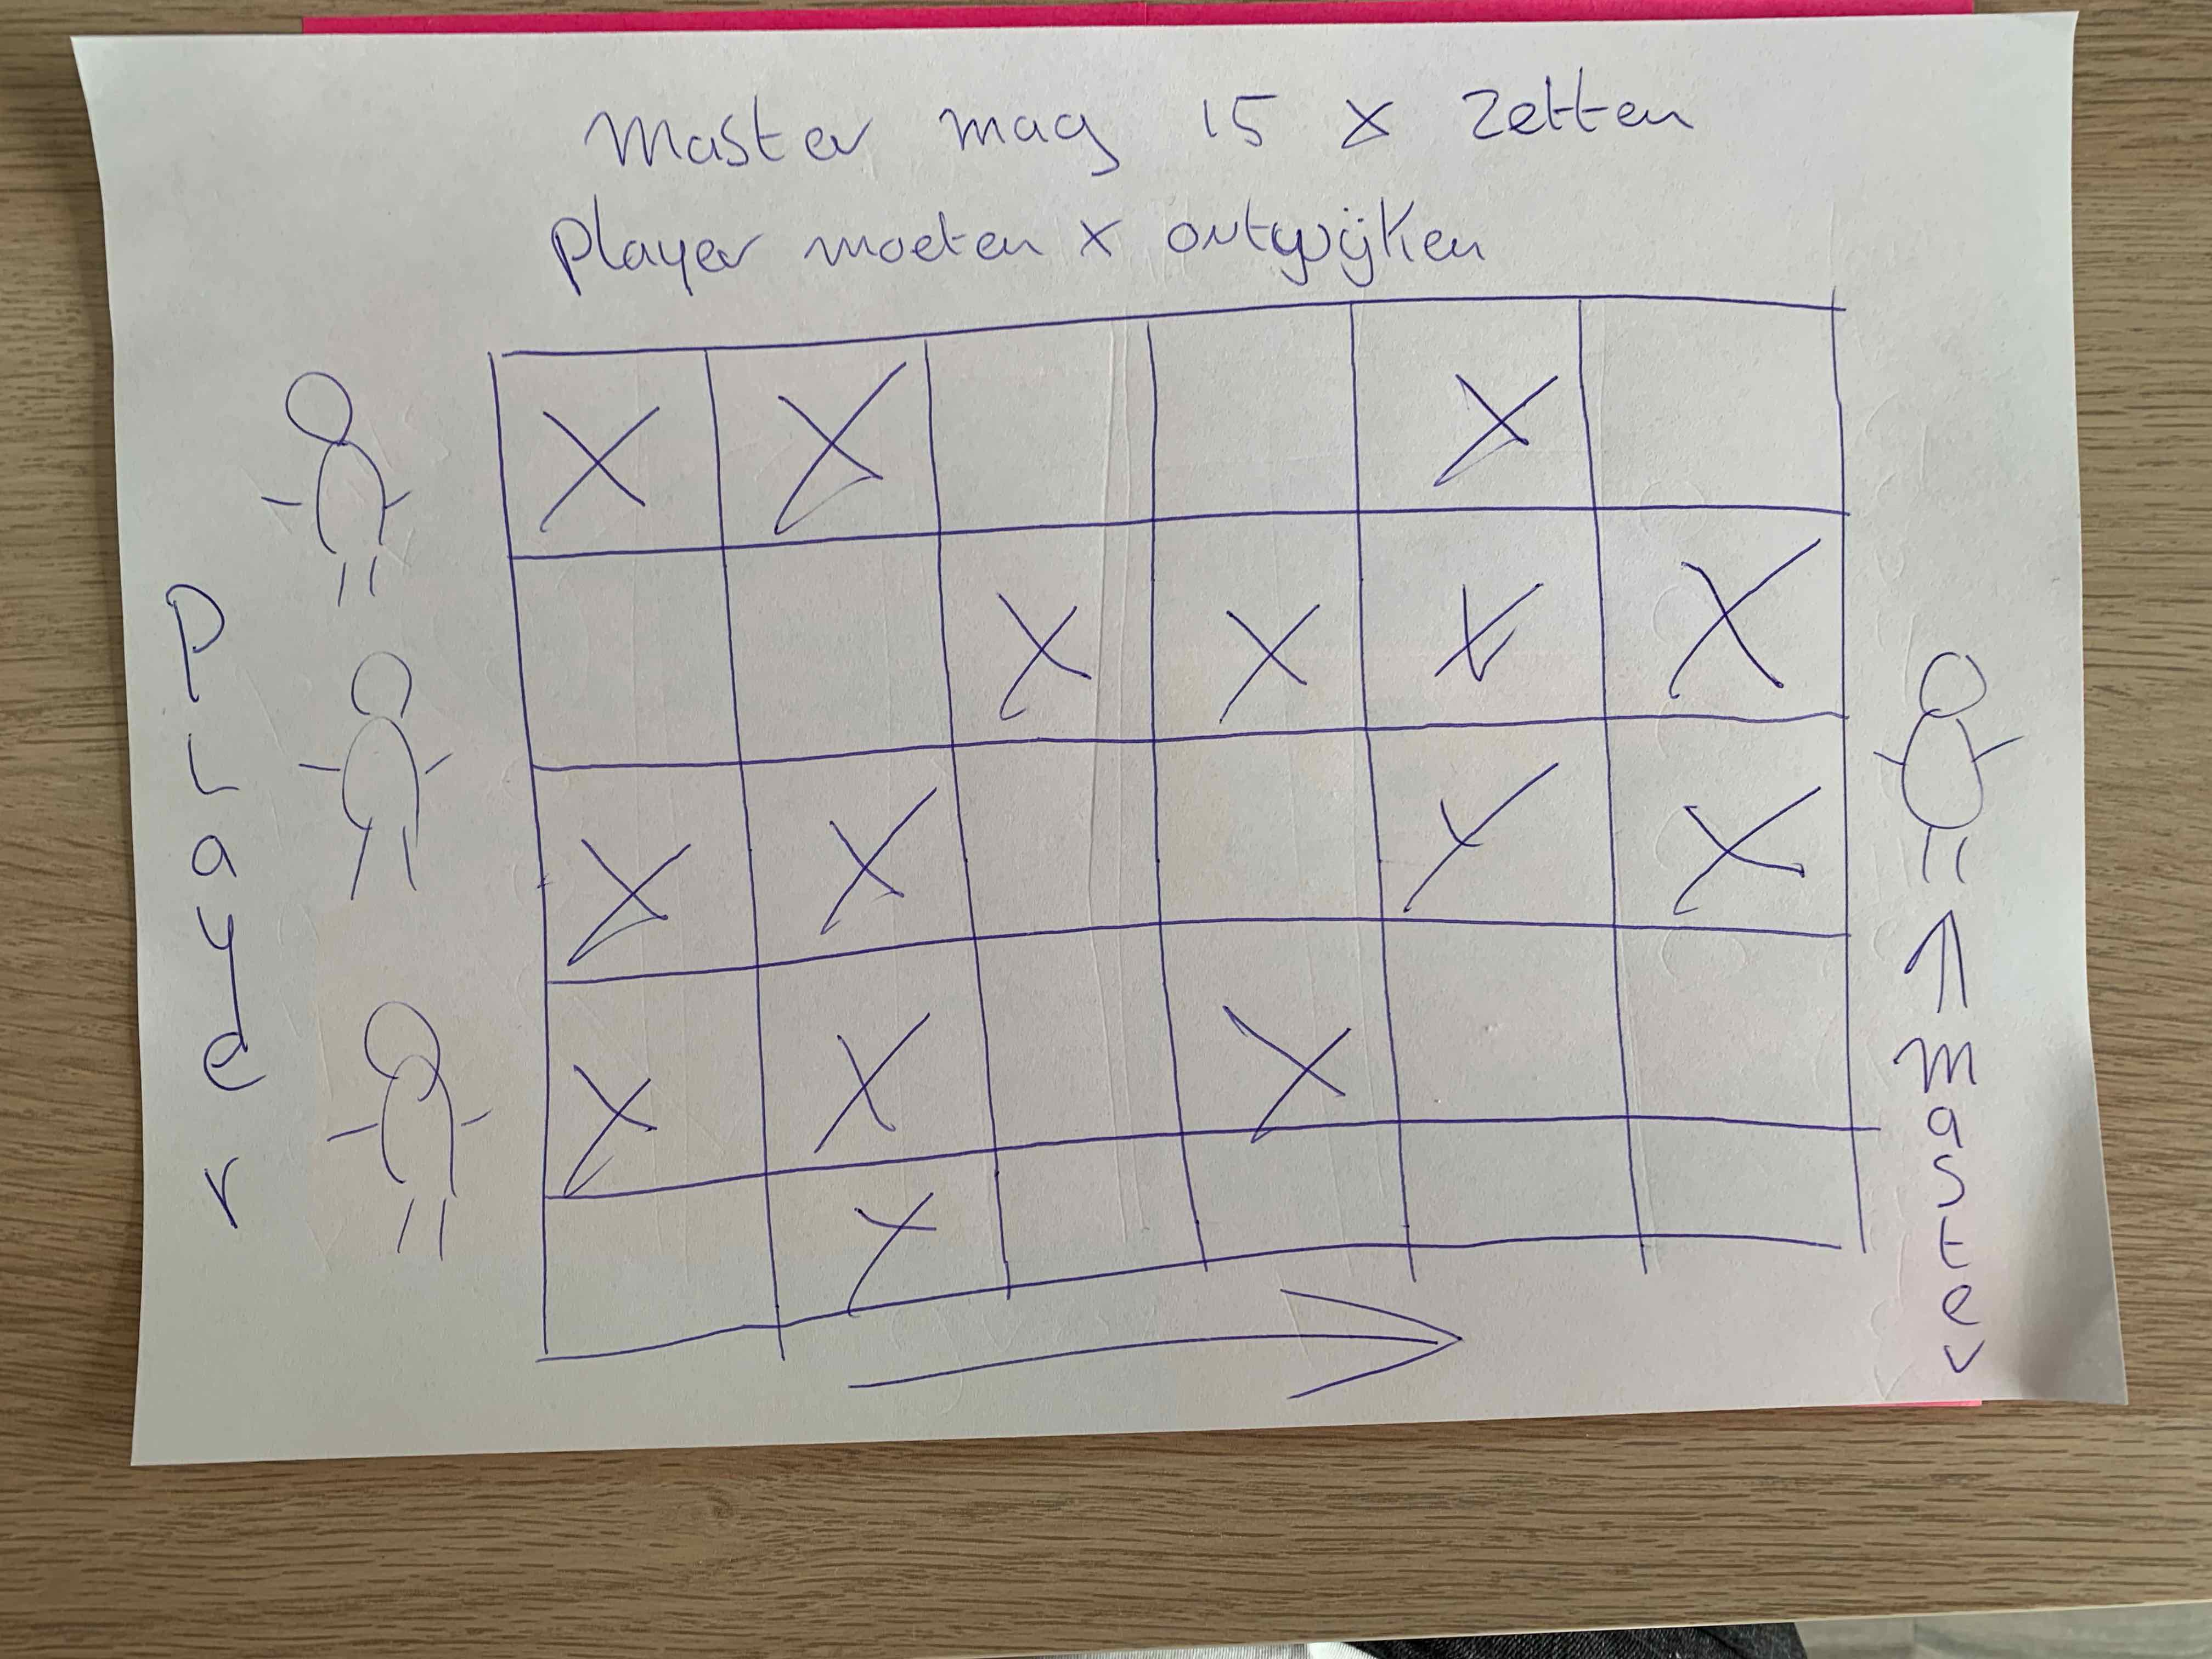 Master mag 15 x zetten
player moeten x ontwijken
X X X
X X X X
X X X X
X X X
X
Player
Master